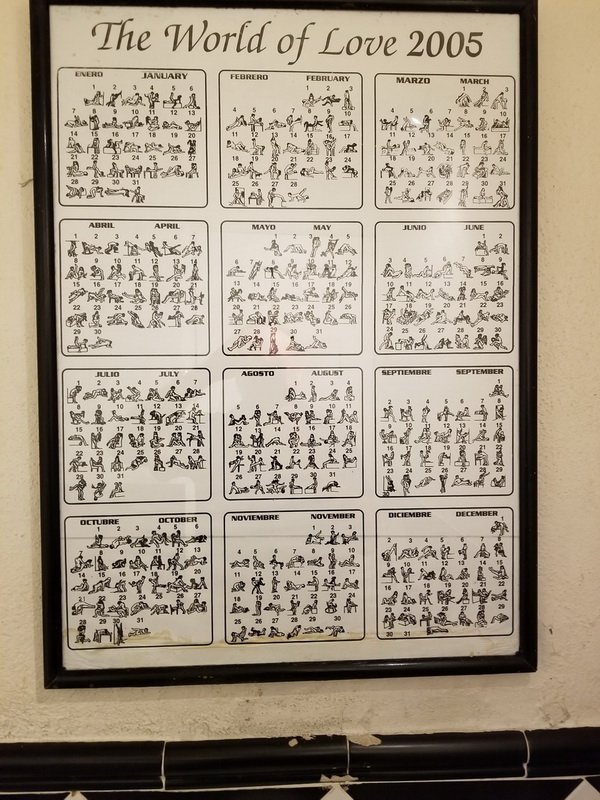 The World of Love 2005
ENERO JANUARY
1 2 3 4 5 6
7 8 9 10 11 12 13
14 15 16 17 18 19 20
21 22 23 24 25 26 27
28 29 30 31
FEBRERO FEBRUARY
1 2 3
4 5 6 7 8 9 10
11 12 13 14 15 16 17
18 19 20 21 22 23 24
25 26 27 28
MARZO MARCH
1 2 3
4 5 6 7 8 9 10
11 12 13 14 15 16 17
18 19 20 21 22 23 24
25 26 27 28 29 30 31
ABRIL APRIL
1 2 3 4 5 6 7
8 9 10 11 12 13 14
15 16 17 18 19 20 21
22 23 24 25 26 27 28
29 30
MAYO MAY
1 2 3 4 5
6 7 8 9 10 11 12
13 14 15 16 17 18 19
20 21 22 23 24 25 26
27 28 29 30 31
JUNIO JUNE
1 2
3 4 5 6 7 8 9
10 11 12 13 14 15 16
17 18 19 20 21 22 23
24 25 26 27 28 29 30
JULIO JULY
1 2 3 4 5 6 7
8 9 10 11 12 13 14
15 16 17 18 19 20 21
22 23 24 25 26 27 28
29 30 31
AGOSTO AUGUST
1 2 3 4
5 6 7 8 9 10 11
12 13 14 15 16 17 18
19 20 21 22 23 24 25
26 27 28 29 30 31
SEPTIEMBRE SEPTEMBER
1
2 3 4 5 6 7 8
9 10 11 12 13 14 15
16 17 18 19 20 21 22
23 24 25 26 27 28 29
30
OCTUBRE OCTOBER
1 2 3 4 5 6
7 8 9 10 11 12 13
14 15 16 17 18 19 20
21 22 23 24 25 26 27
28 29 30 31
NOVIEMBRE NOVEMBER
1 2 3
4 5 6 7 8 9 10
11 12 13 14 15 16 17
18 19 20 21 22 23 24
25 26 27 28 29 30
DICIEMBRE DECEMBER
1
2 3 4 5 6 7 8
9 10 11 12 13 14 15
16 17 18 19 20 21 22
23 24 25 26 27 28 29
30 31